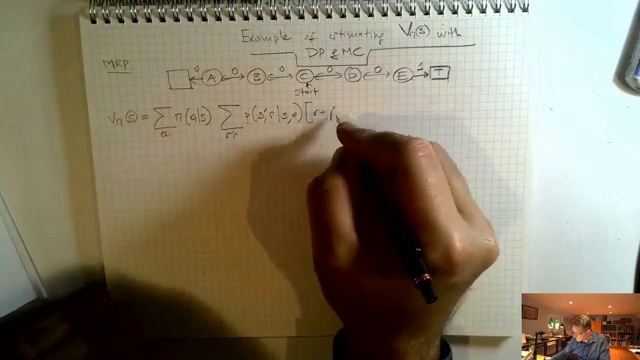 Example of estimating Vπ(s) with
DP & MC
MRP
0 A 0 B 0 C 0 D 0 E 1 T
start
Vπ(s) = Σ π(a|s) Σ p(s',r|s,a) [r+γ
a s',r